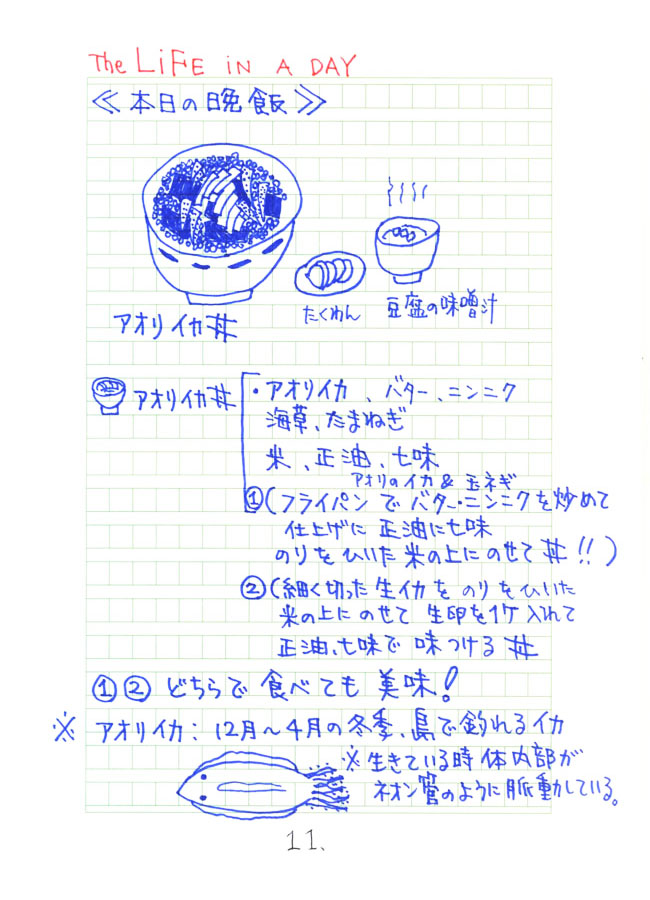 The LiFE iN A DAY
≪本日の晩飯≫
アオリイカ丼
たくわん
豆腐の味噌汁
アオリイカ丼
・アオリイカ、バター、ニンニク
海草、たまねぎ
米、正油、七味
アオリのイカ & 玉ネギ
①(フライパンでバター・ニンニクを炒めて
仕上げに正油に七味
のりをひいた米の上にのせて丼!!)
②(細く切った生イカをのりをひいた
米の上にのせて生卵を1ケ入れて
正油、七味で味つける丼
①②どちらで食べても美味!
※アオリイカ:12月〜4月の冬季、島で釣れるイカ
…※生きている時体内部が
ネオン管のように脈動している。
11.